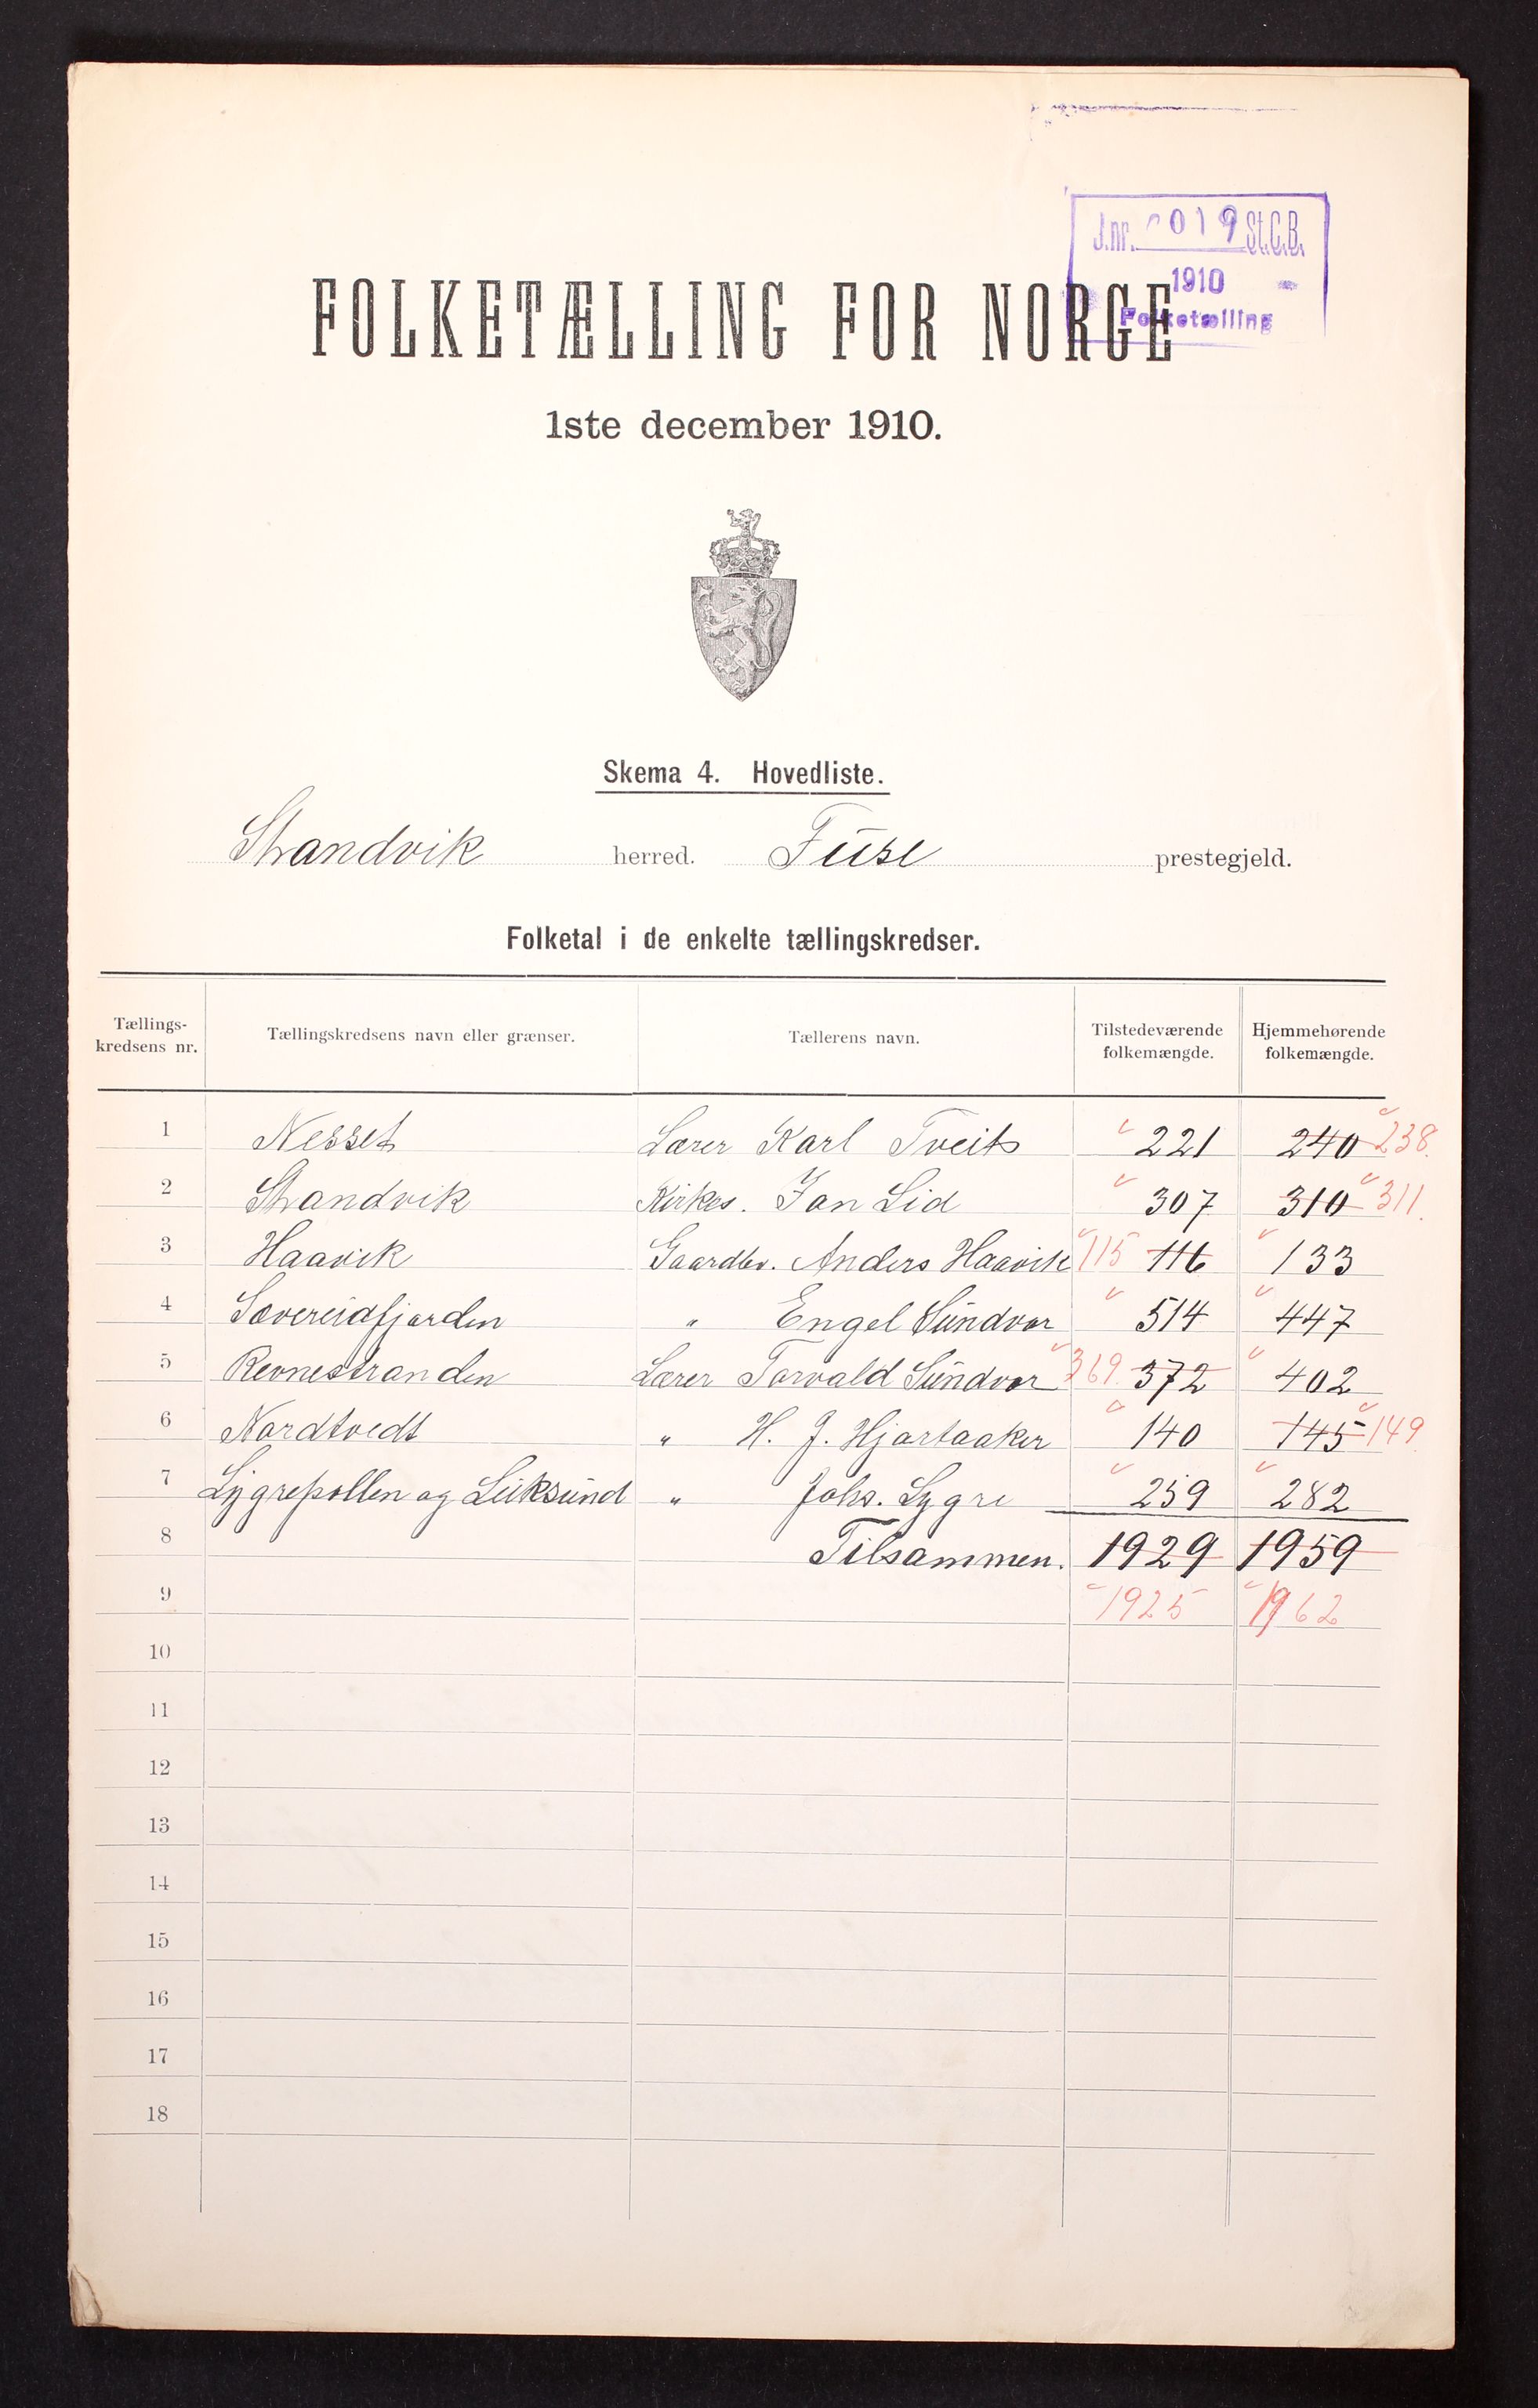 J.nr. 019 St.C.B.
1910
Folketælling
FOLKETÆLLING FOR NORGE
1ste december 1910.
Skema 4. Hovedliste.
Strandvik herred. Fuse prestegjeld.
Folketal i de enkelte tællingskredser.
Tællings-kredsens nr. Tællingskredsens navn eller grænser. Tællerens navn. Tilstedeværende folkemængde. Hjemmehørende folkemængde.
1 Nesset Lærer Karl Tveit 221 240 238.
2 Strandvik Kirkes. Jan Lid 307 310 311.
3 Haavik Gaardbr. Anders Haavik 115 116 133
4 Sævereidfjorden " Engel Sundvor 514 447
5 Revnestranden Lærer Torvald Sundvor 369 372 402
6 Nordtvedt " H. J. Hjartaaker 140 145 149.
7 Lygrepollen og Luksund " Johs. Lygre 259 282
8 Tilsammen. 1929 1959
9 1925 1962
10
11
12
13
14
15
16
17
18